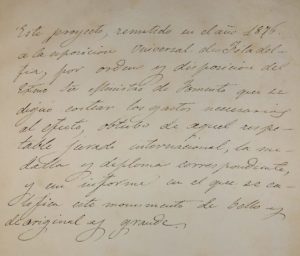 Este proyecto, remitido en el año 1876
a la esposicion Universal de Filadel-
fia, por orden y disposicion del
Exmo Sr Ministro de Fomento que se
dignó costear los gastos necesarios
al efecto, obtubo de aquel respe-
table jurado internacional, la me-
dalla y diploma correspondiente,
y un informe en el que se ca-
lifica este monumento de bello y
de original y grande.